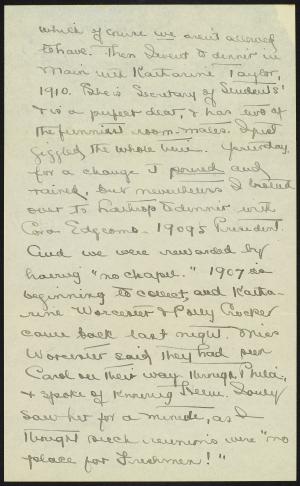 which of course we aren't allowed
to have. Then I went to dinner in
Main with Katharine Taylor,
1910. She is Secretary of Students'
& is a perfect dear, & has two of
the funniest room-mates. I just
giggled the whole time. Yesterday,
for a change it poured and
rained, but nevertheless I
over to Lathrop to dinner with
Cora Edgcomb - 1909's President.
And we were rewarded by
having "no chapel." 1907 is
beginning to collect, and Katha-
rine Worcester & Polly Crocker
came back last night. Miss
Worcester said they had seen
Carol on their way through Phila.
& spoke of knowing them. I only
saw her for a minute, as I
thought such reunions were "no
place for Freshmen!"